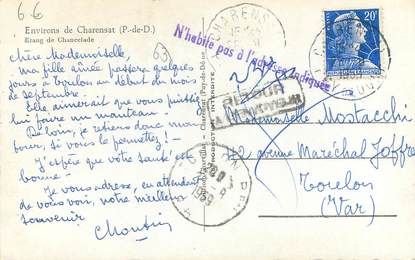 6 6
Environs de Charensat (P.-de-D.)
Etang de Chancelade
63
Chère Mademoiselle,
ma fille aînée passera quelques
jours à Toulon au début du mois
de septembre.
Elle aimerait que vous puissiez
lui faire un manteau.
De loin, je retiens donc
tour, si vous le permettez !
J'espère que votre santé est
bonne.
Je vous adresse, en attendant
de vous voir, notre meilleur
souvenir
CHARENS
N'habite pas à l'adresse indiquée
20F
RETOUR
A L'ENVOYEUR
1959
Mademoiselle Mostacchi
avenue Maréchal Joffre
Toulon
(Var)